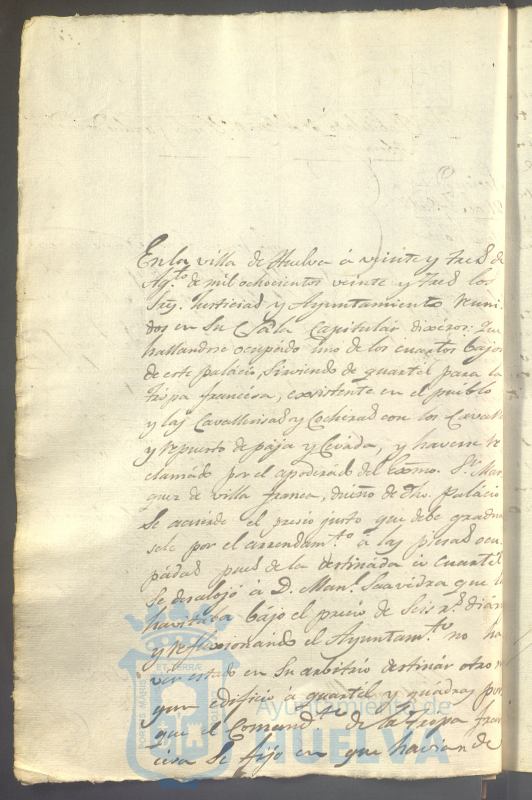 En la villa de Huelva á veinte y tres de
Ag.to de mil ochocientos veinte y tres los
Sres. Justicias y Ayuntamiento reuni
dos en su Sala Capitular dixeron: Que
hallandose ocupado uno de los cuartos bajos
de este palacio, sirviendo de quartel para la
tropa francesa, existente en el pueblo
y las Cavallerisas y Cocheras con los Cavall
y repuesto de paja y Cevada, y haverse re
clamado por el apoderado del Exmo. Sr. Mar
quez de villa franca, dueño de dho. Palacio
se acuerde el precio justo que debe gradua
sele por el arrendam.to á las piezas ocu
pádas pues de la destinada á cuartel
se desalojó á D. Man.l Saavedra que la
havitaba bájo el precio de seis rs. diár
y reflexionando el Ayuntam.to no ha
ver estado en su arbitrio destinár otro
que edificio á quartél y quadras por
que el Comand.te de la tropa fran
cesa se fijó en que havian de
Ayuntamiento de
HUELVA